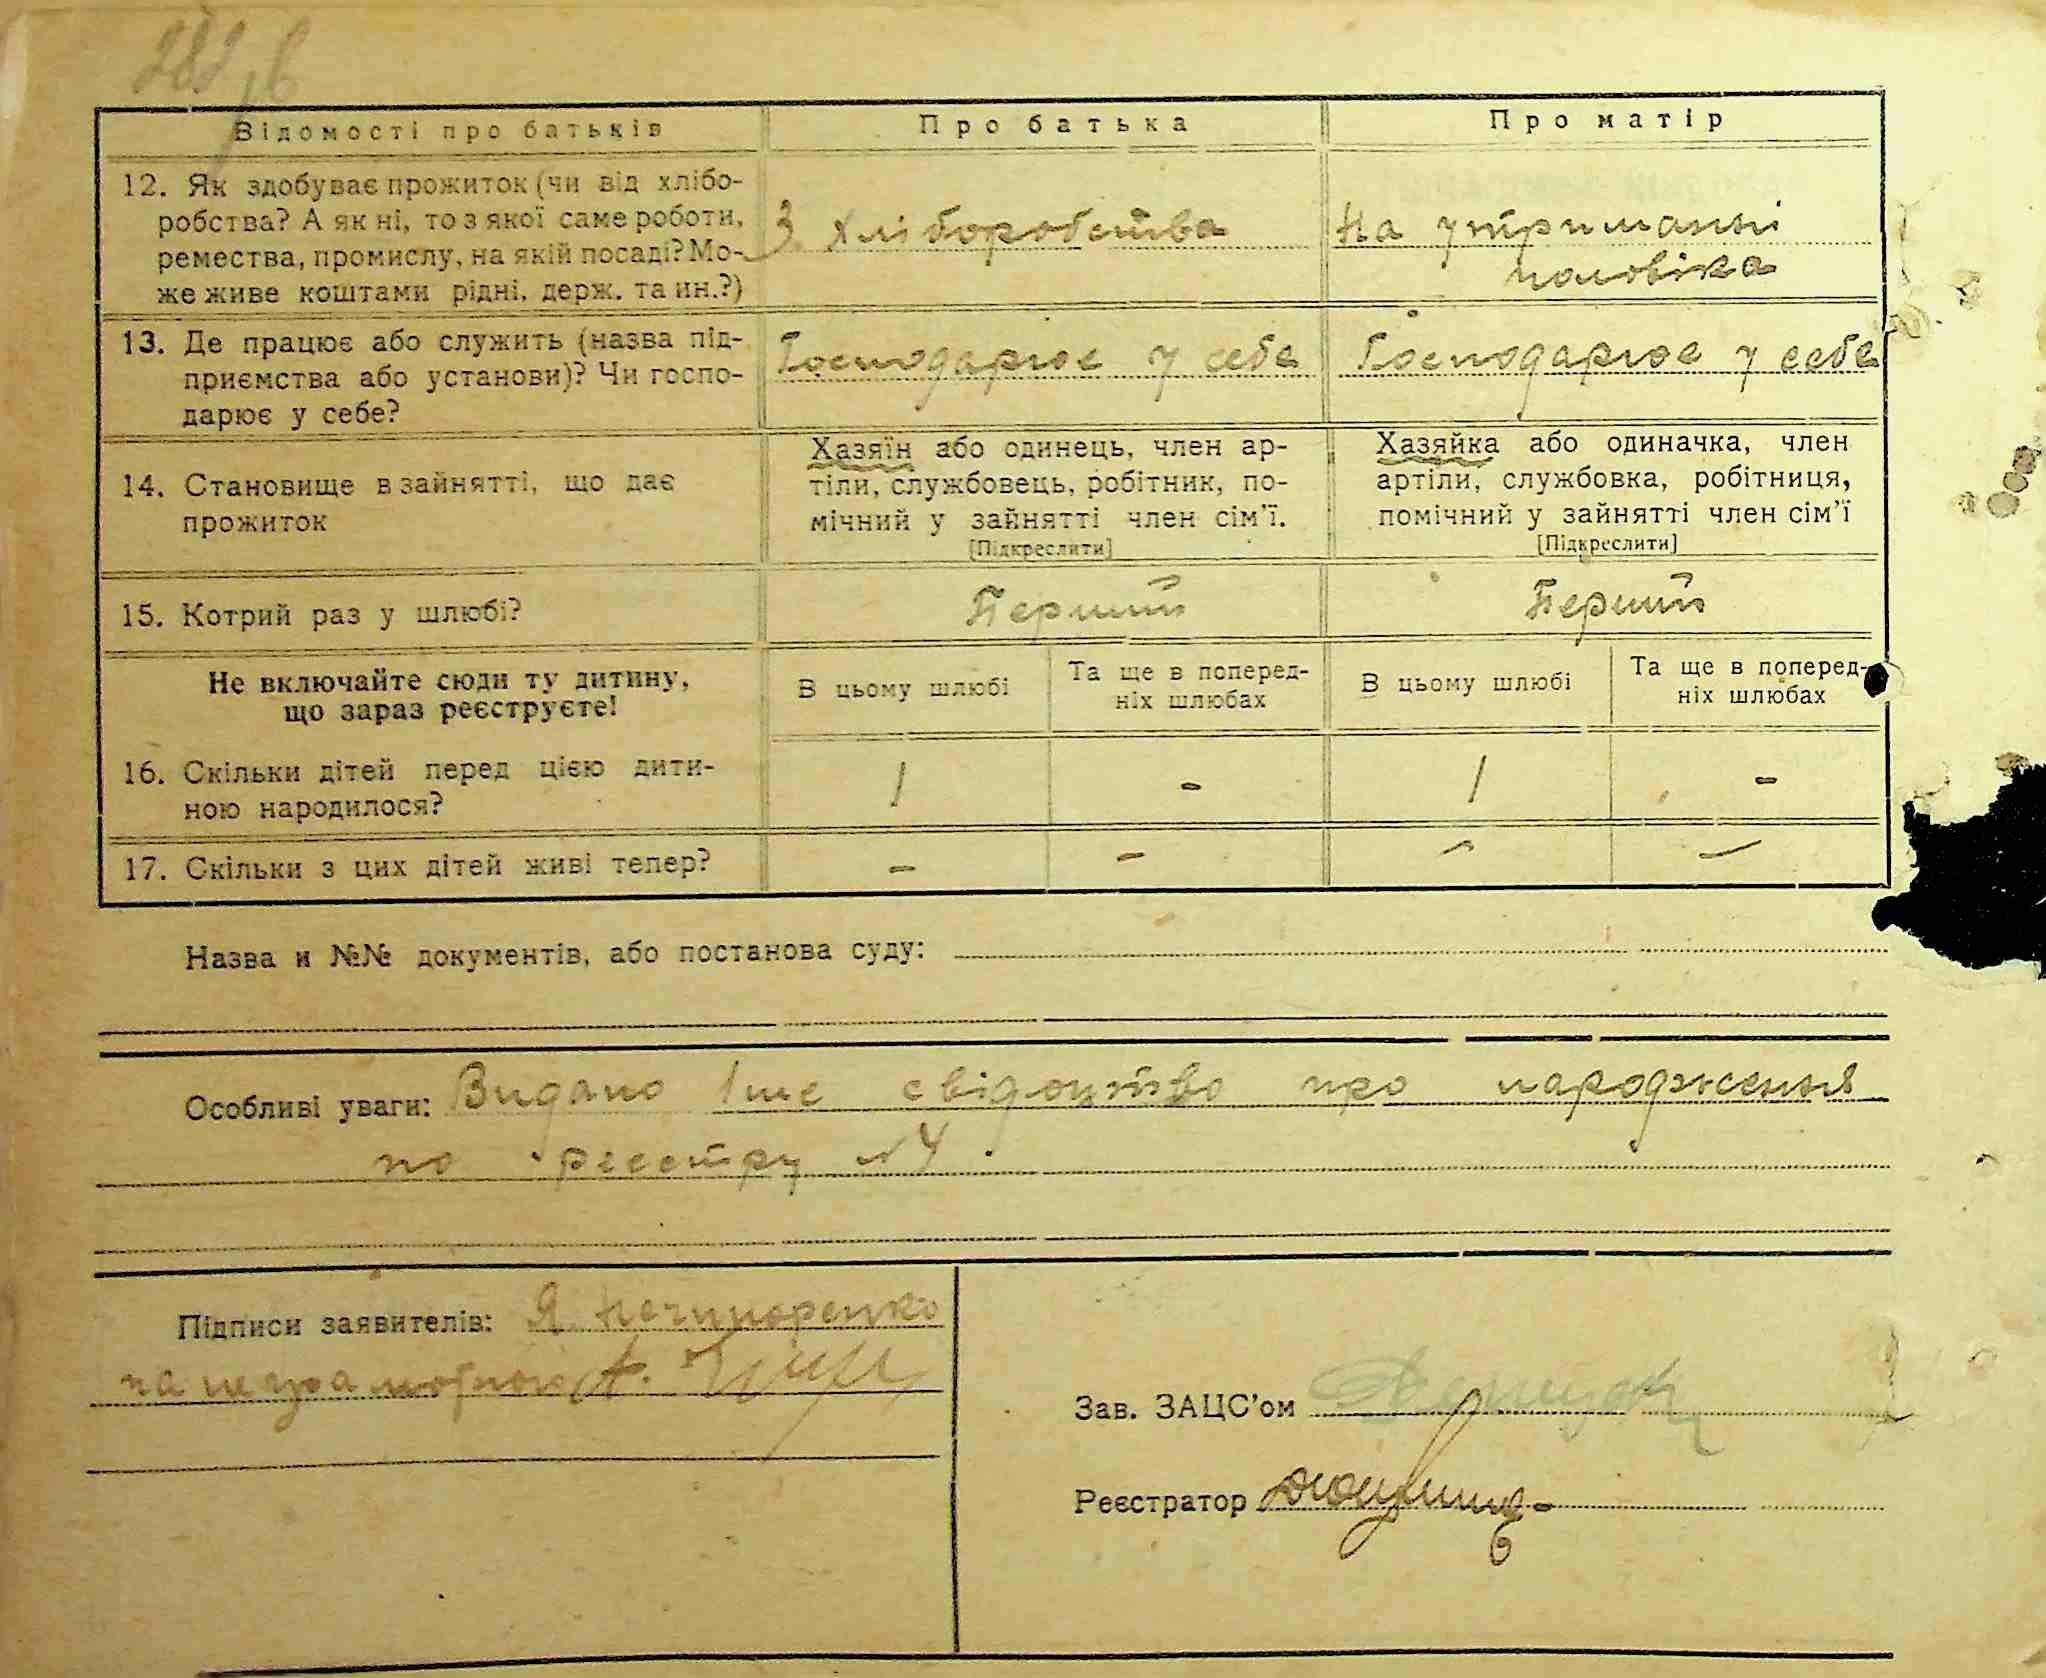 282
Відомості про батьків Про батька Про матір
12. Як здобуває прожиток (чи від хлібо-
робства? А як ні, то з якої саме роботи,
ремества, промислу, на якій посаді? Мо-
же живе коштами рідні, держ. та ин.?)
З хліборобства
На утриманні
чоловіка
13. Де працює або служить (назва під-
приємства або установи)? Чи госпо-
дарює у себе?
Господарює у себе
Господарює у себе
14. Становище в зайнятті, що дає
прожиток
Хазяїн або одинець, член ар-
тіли, службовець, робітник, по-
мічний у зайнятті член сім'ї.
[Підкреслити]
Хазяйка або одиначка, член
артіли, службовка, робітниця,
помічний у зайнятті член сім'ї
[Підкреслити]
15. Котрий раз у шлюбі? Перший Перший
Не включайте сюди ту дитину,
що зараз реєструєте!
В цьому шлюбі
Та ще в поперед-
ніх шлюбах
В цьому шлюбі
Та ще в поперед-
ніх шлюбах
16. Скільки дітей перед цією дити-
ною народилося?
1 - 1 -
17. Скільки з цих дітей живі тепер? - - - -
Назва и №№ документів, або постанова суду:
Особливі уваги: Видано 1ше свідоцтво про народження
по реєстру №4
Підписи заявителів: Я. Нечипоренко
Зав. ЗАЦС'ом
Реєстратор